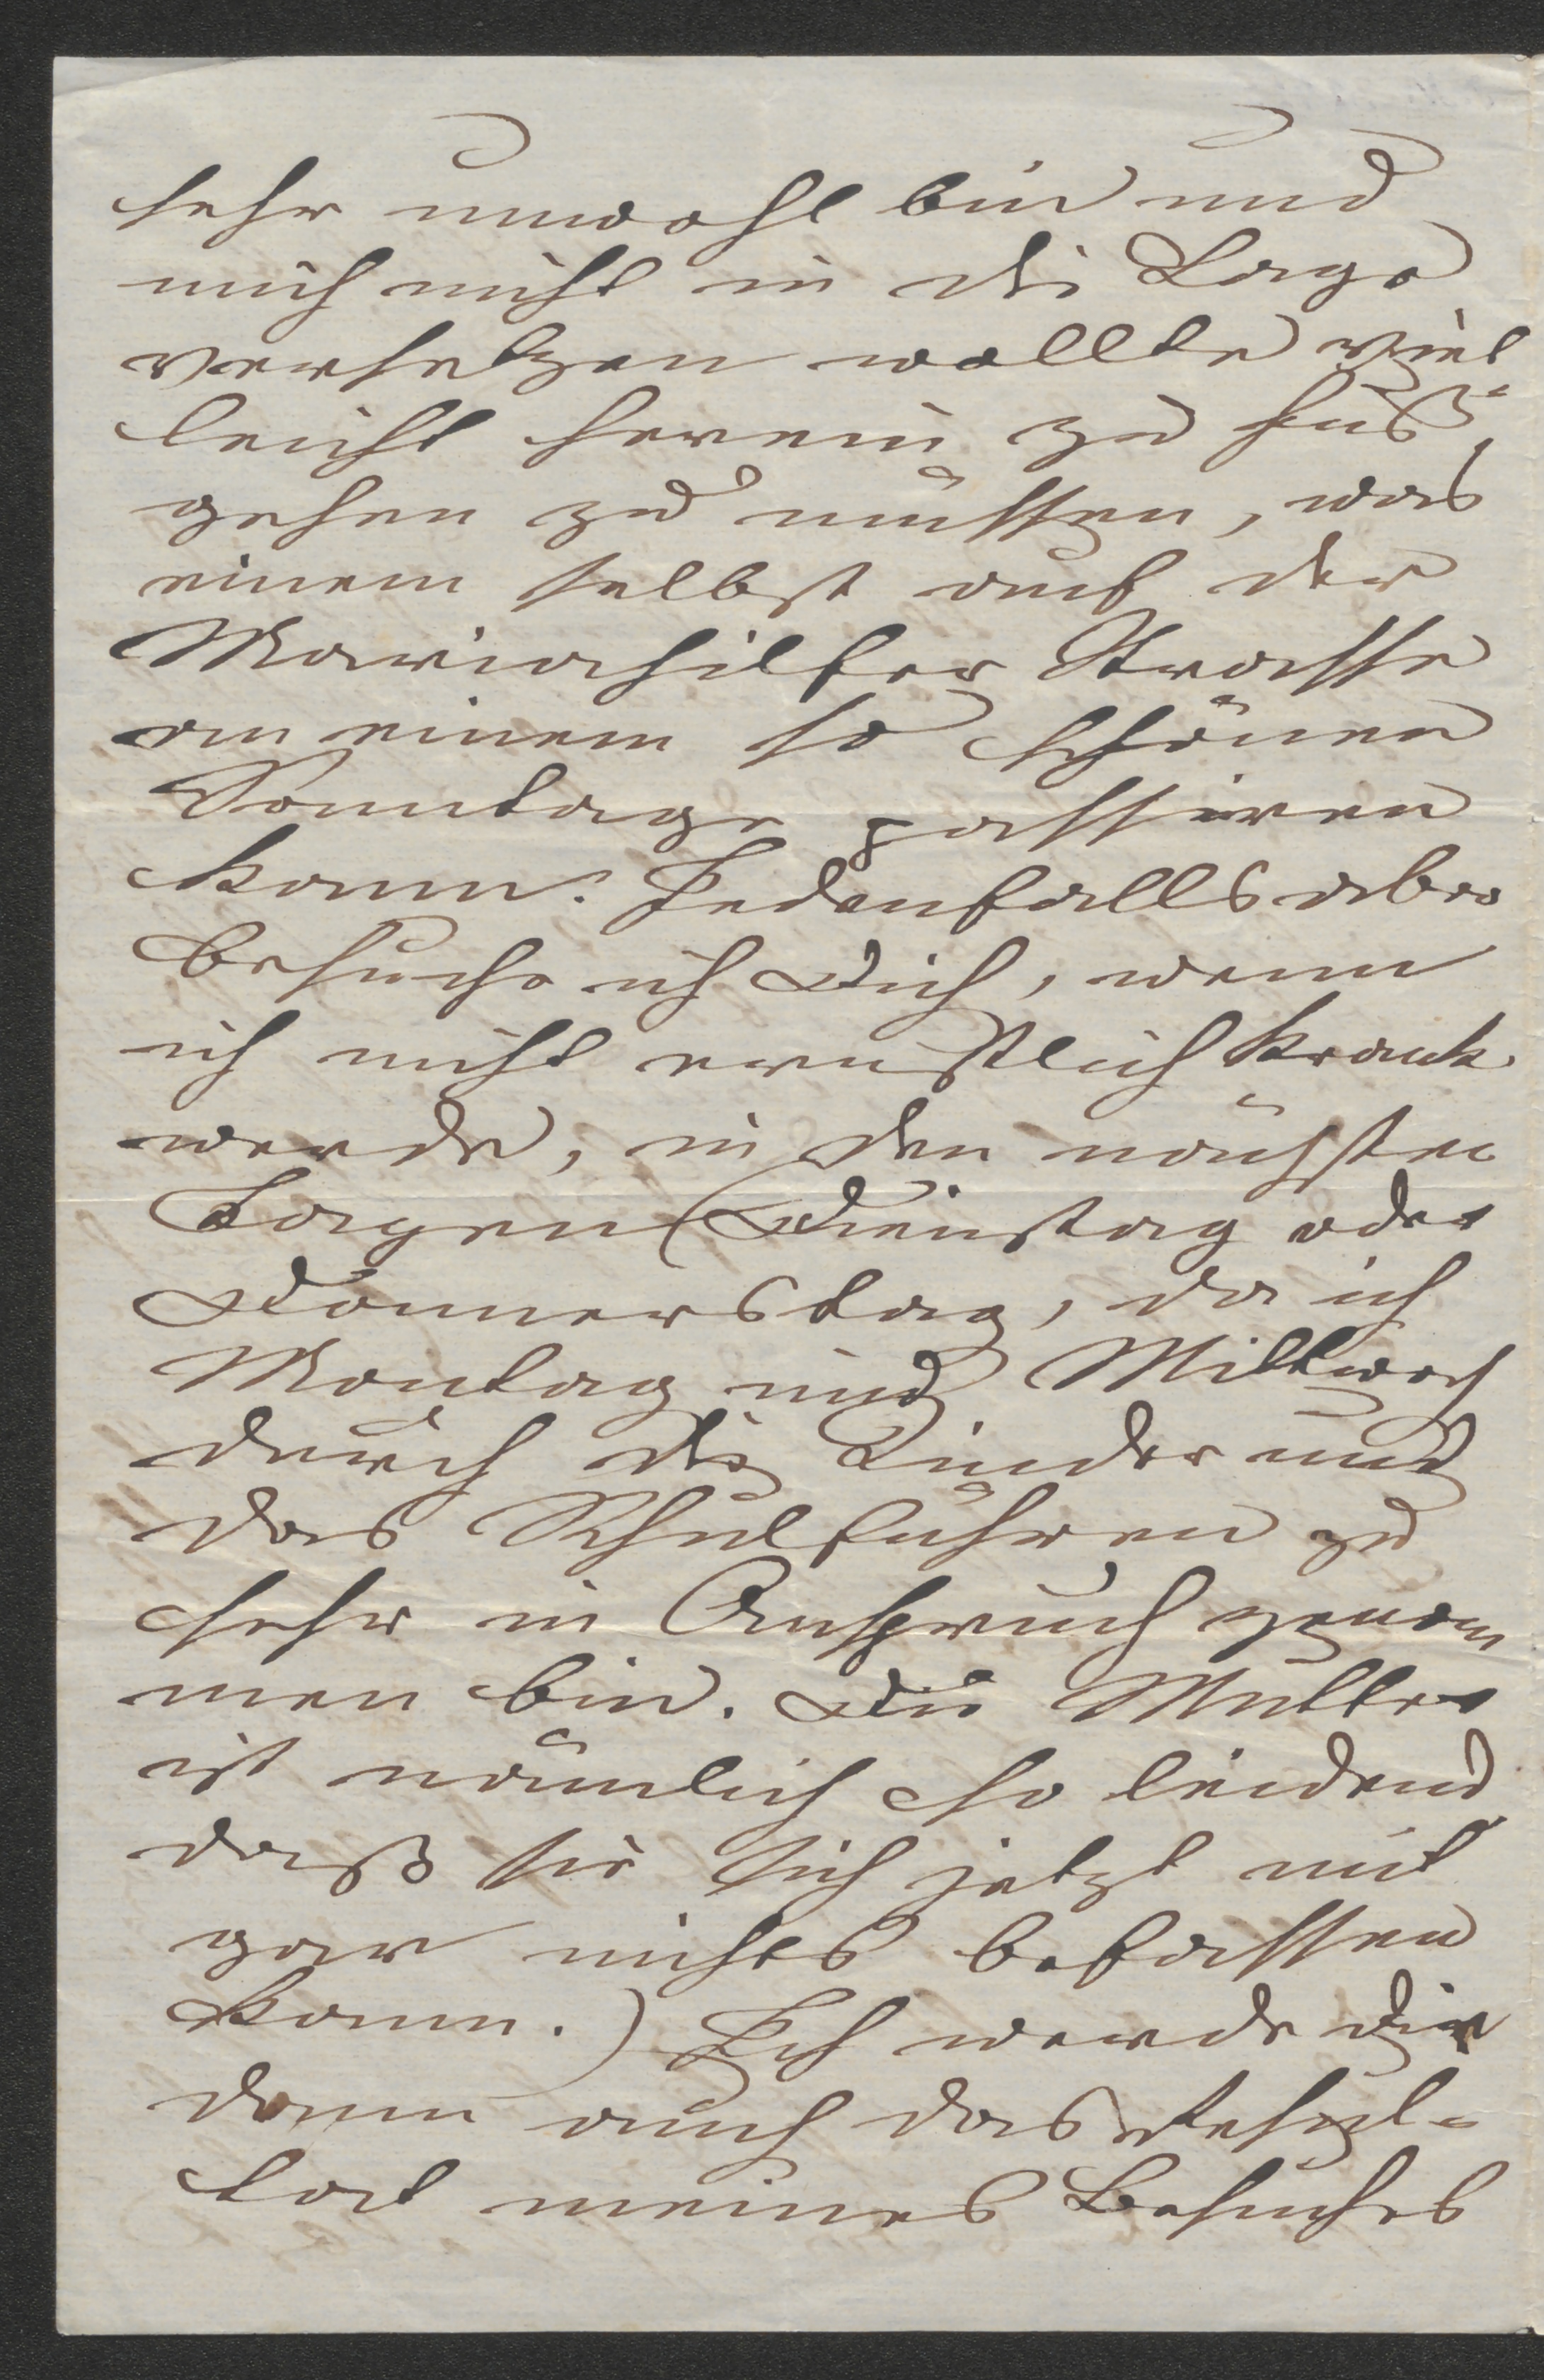 sehr unwohl bin und
mich nicht in die Lage
versetzen wollte viel-
leicht herein zu fuß
gehen zu müssen, was
einem selbst auf der
Mariahilfer Strasse
an einem so schönen
Sonntage passiren
kann. Jedenfalls aber
besuche ich Dich, wenn
ich nicht ernstlich krank
werde, in den nächsten
Tagen (Dienstag oder
Donnerstag, da ich
Montag und Mittwoch
durch die Kinder und
das Schulführen zu
sehr in Anspruch genom
men bin. Die Mutter
ist nämlich so leidend
daß sie sich jetzt mit
gar nichts befassen
kann.) Ich werde dir
dann auch das Resul-
tat meines Besuches